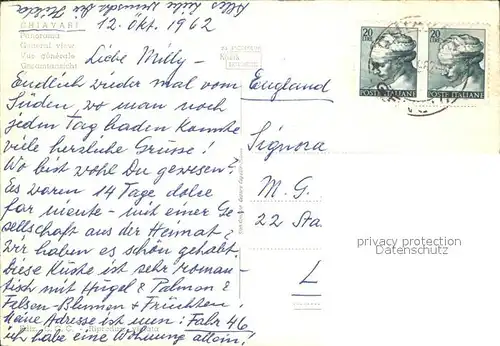 Alles Liebe wünscht Dir
CHIAVARI
Panorama
General view
Vue générale
Gesamtansicht
12. Okt. 1962
Liebe Milly -
Endlich wieder mal vom
Süden, wo man noch
jeden Tag baden konnte
viele herzliche Grüsse!
Wo bist wohl Du gewesen?
Es waren 14 Tage dolce
far niente - mit einer Ge
sellschaft aus der Heimat?
Wir haben es schön gehabt.
Diese Küste ist sehr roman-
tisch mit Hügel & Palmen &
Felsen - Blumen & Früchten!
Meine Adresse ist nun: Fahr 46
ich habe eine Wohnung allein!
20 LIRE
POSTE ITALIANE
20 LIRE
POSTE ITALIANE
England
Signora
M. G.
22 Sta.
L
privacy protection
Datenschutz